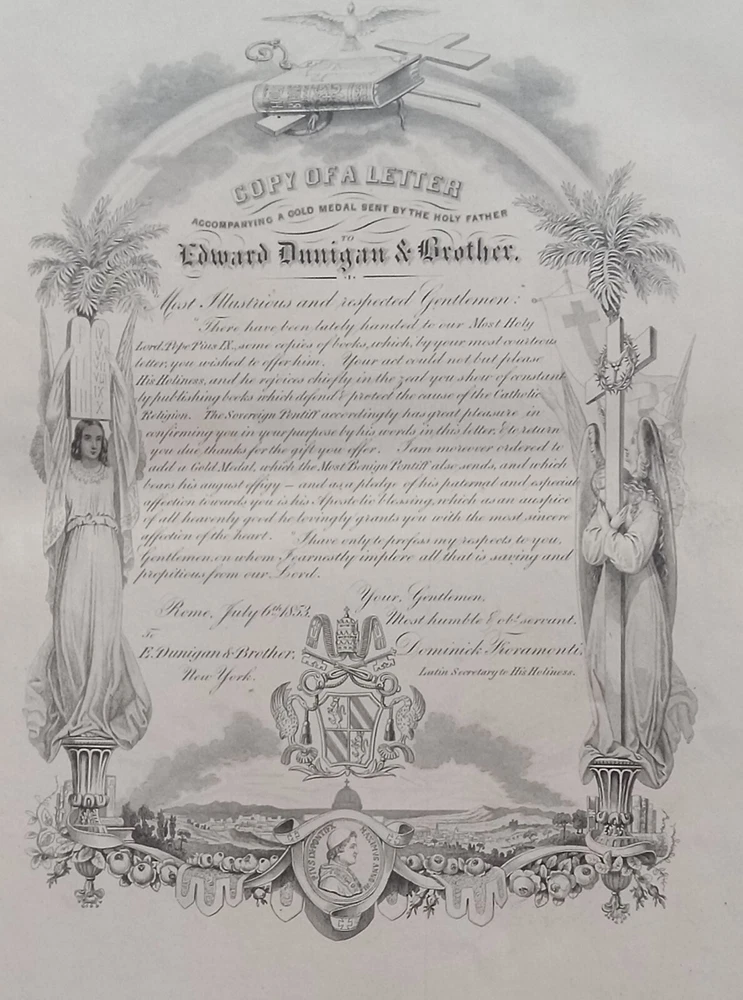 COPY OF A LETTER
ACCOMPANYING A GOLD MEDAL SENT BY THE HOLY FATHER
TO
Edward Dunigan & Brother.
Most Illustrious and respected Gentlemen:
There have been lately handed to our Most Holy
Lord, Pope Pius IX., some copies of books, which, by your most courteous
letter, you wished to offer him. Your act could not but please
His Holiness, and he rejoices chiefly in the zeal you show of constant-
ly publishing books which defend & protect the cause of the Catholic
Religion. The Sovereign Pontiff accordingly has great pleasure in
confirming you in your purpose by his words in this letter, & to return
you due thanks for the gift you offer. I am moreover ordered to
add a Gold Medal, which the Most Benign Pontiff also sends, and which
bears his august effigy — and as a pledge of his paternal and especial
affection towards you is his Apostolic blessing, which as an auspice
of all heavenly good he lovingly grants you with the most sincere
affection of the heart. I have only to profess my respects to you,
Gentlemen, on whom I earnestly implore all that is saving and
propitious from our Lord.
Your, Gentlemen,
Rome, July 6th 1853.
Most humble & obt. servant.
To
E. Dunigan & Brother,
Dominick Fioramonti,
New York.
Latin Secretary to His Holiness.
PIUS IX PONTIFEX MAXIMUS